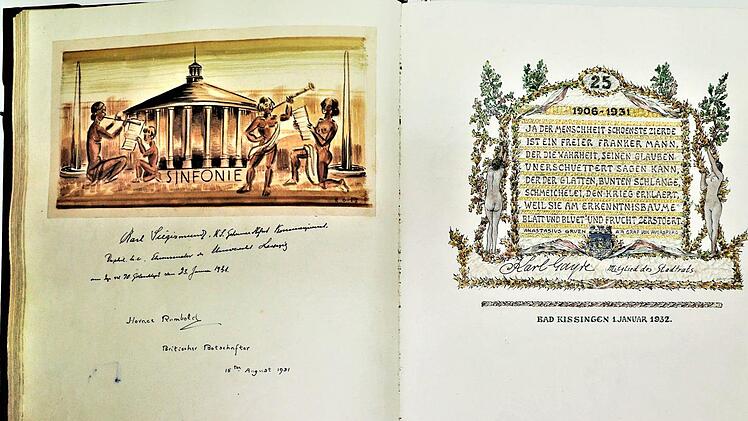 SINFONIE
Karl Siegismund,
22. Januar 1931
Horace Rumbold
Britischer Botschafter
15ten August 1931
25
1906-1931
JA DER MENSCHHEIT SCHOENSTE ZIERDE
IST EIN FREIER FRANKER MANN,
DER DIE WAHRHEIT, SEINEN GLAUBEN
UNERSCHUETTERT SAGEN KANN,
DER DER GLATTEN, BUNTEN SCHLANGE
SCHMEICHELEI, DEN KRIEG ERKLAERT,
WEIL SIE AM ERKENNTNISBAUME
BLATT UND BLUET' UND FRUCHT ZERSTOERT.
ANASTASIUS GRUEN A.A. GRAF VON AUERSPERG
Karl Gayk Mitglied des Stadtrats
BAD KISSINGEN 1. JANUAR 1932.